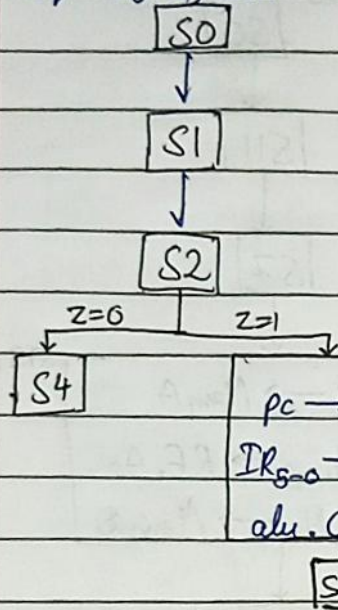 S0
S1
S2
Z=0 Z=1
S4
pc —
IR5-0 —
alu.
S